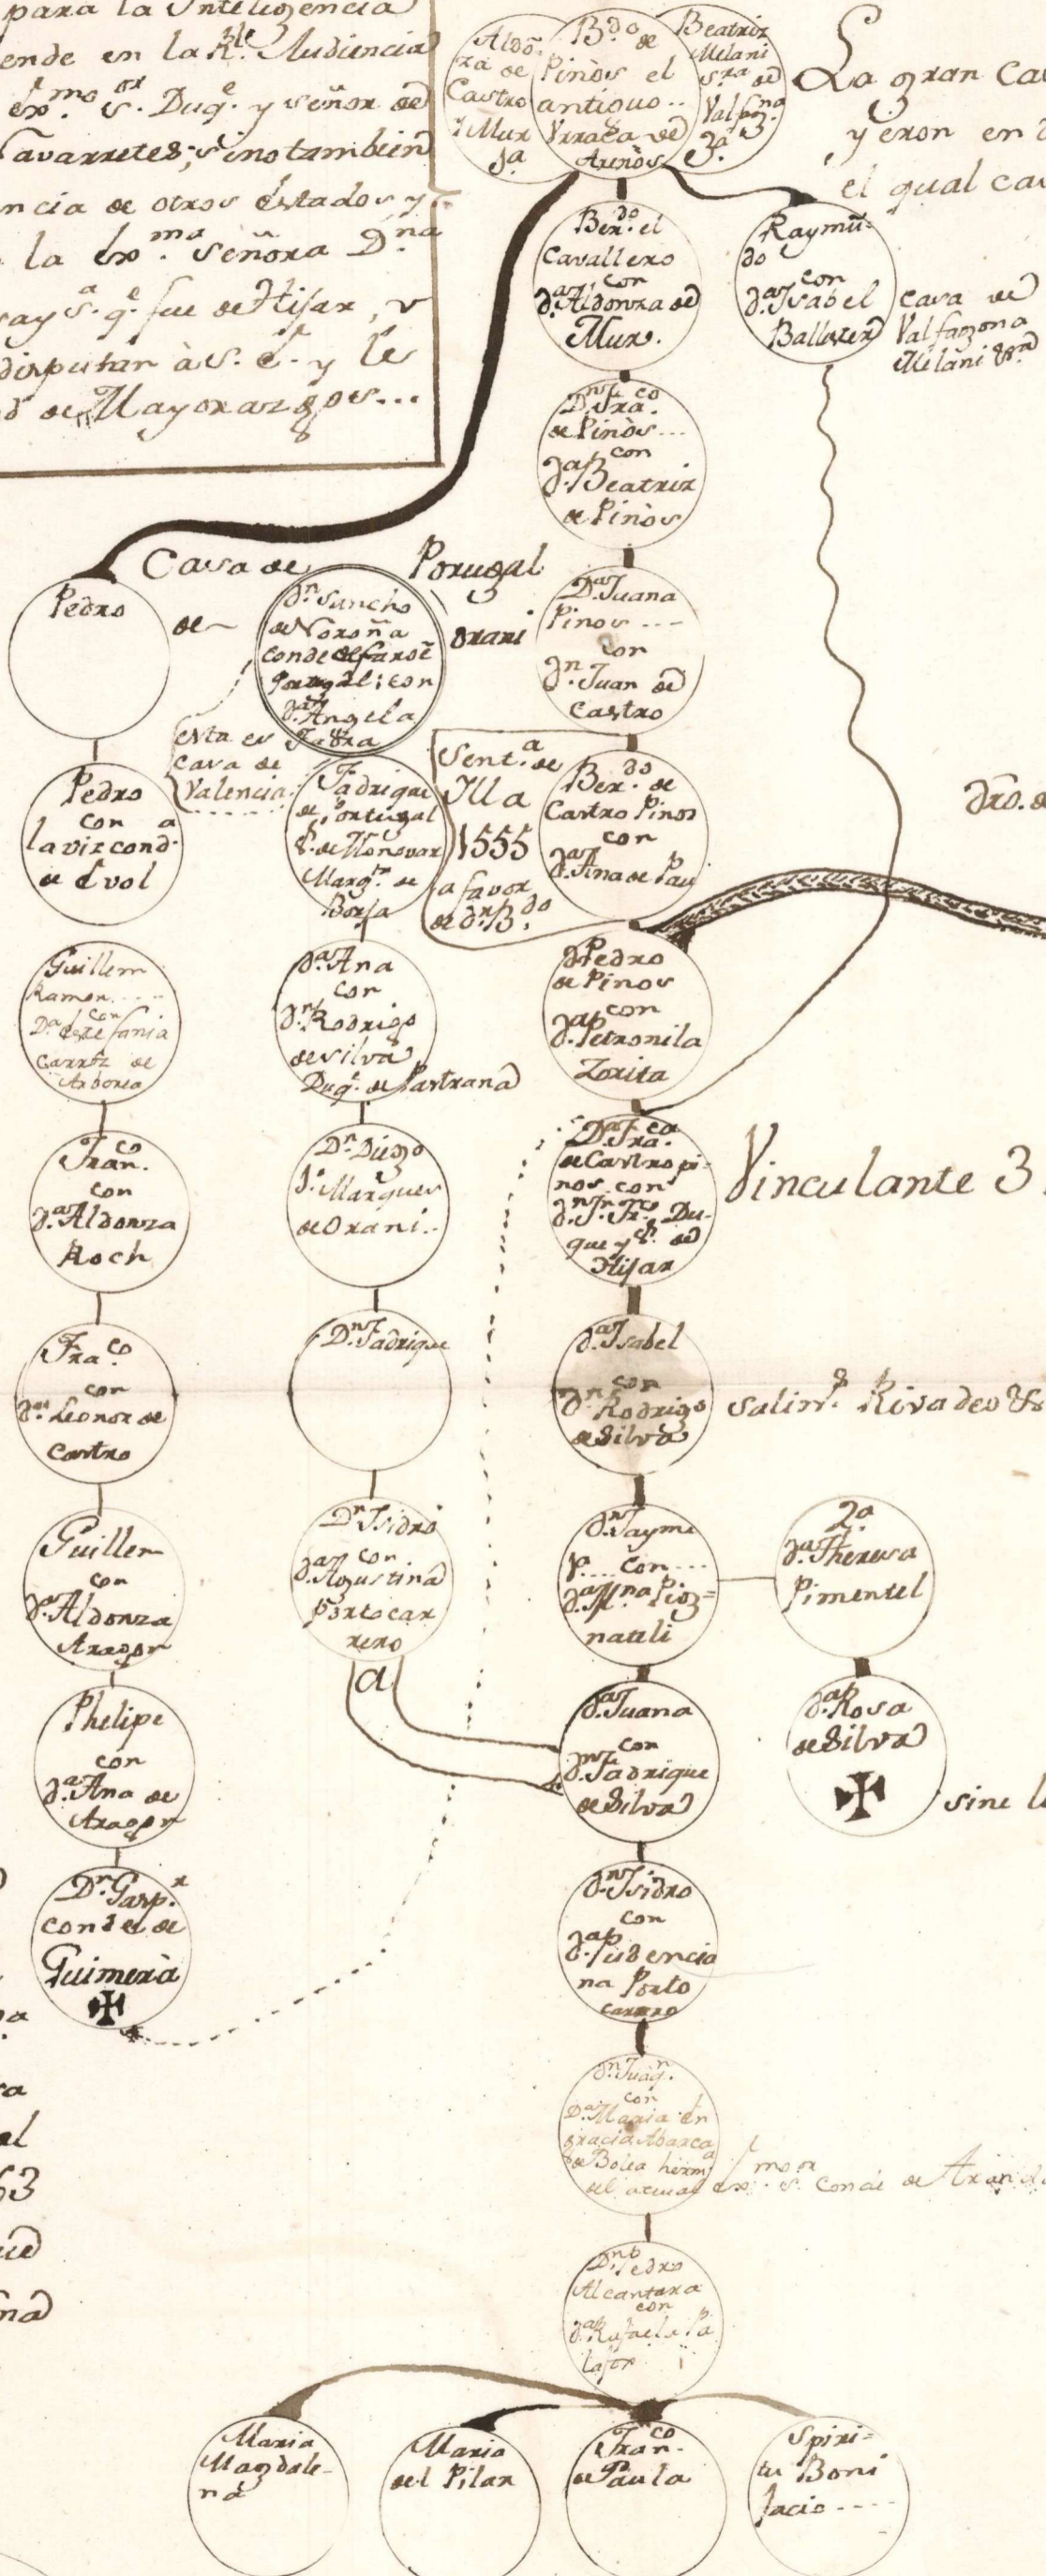 para la Inteligencia
ende en la Rl. Audiencia
exmo. sor. Duqe. y señor de
Navarretes; sino tambien
ncia de otros Estados y
la Exma. Señora Dna.
sa. qe. fue de Hijar, y
disputar à S. E. y le
de Mayorazgos...
Aldon
za de
Castro
y Mur
1a.
Bdo. de
Pinòs el
antiguo..
Urraca de
Arenòs
Beatriz
Melani
sra. de
Valfogna.
3a.
La gran Ca
yeron en
el qual ca
Berdo. el
Cavallero
con
da. Aldonza de
Mur.
Raymũ=
do
con
da. Isabel
Ballster
Casa de
Valfagona
Milãni &a.
Dn. Franco.
de Pinòs...
con
da. Beatriz
de Pinòs
Casa de Porugal
Pedro
de
dn. Sancho
de Noroña
conde de faro ẽ
Portugal: con
da. Angela
Fabra
orani
Da. Juana
Pinos ---
con
dn. Juan de
Castro
esta es
casa de
Valencia
Pedro
con a
la vizcond.
de Evol
Fadrique
de Portugal
s. de Monovar
Margta. de
Borja
Senta. de
Illa
1555
a favor
de dn. Bdo.
Berdo. de
Castro Pinos
con
da. Ana de Pau
dro. d
Guillem
Ramon.....
con
Da. Estefania
Carroz de
Arborea
da. Ana
con
dn. Rodrigo
de Silva
Duqe. de Pastrana
d. Pedro
de Pinos
con
da. Petronila
Zorita
Franco.
con
da. Aldonza
Roch
Dn. Diego
1o. Marques
de Orani..
Da. Franca.
de Castro pi-
nos con
dn. Jn. Fr. Du-
que y sr. de
Hijar
Vinculante 3
Fraco.
con
da. Leonor de
Castro
Dn. Fadrique
da. Isabel
con
dn. Rodrigo
de Silva
Salins. Rivadeo &
Guillem
con
da. Aldonza
Aragon
Dn. Isidro
con
da. Agustina
Portocar
rero
dn. Jayme
1o... con...
da. Ma. na Pig=
nateli
2a.
da. Theresa
Pimentel
a
Phelipe
con
da. Ana de
Aragon
da. Juana
con
dn. Fadrique
de Silva
da. Rosa
de Silva
sine l
Dn. Gaspr.
conde de
Guimerà
dn. Isidro
con
da. Prudencia
na Porto
carrero
dn. Juaqn.
con
Da. Maria En
gracia Abarca
de Bolea herma.
del actual Exmo. sr. Conde de Aranda
63
Dn. Pedro
Alcantara
con
da. Rafaela Pa
lafox
Maria
Magdale-
na
Maria
del Pilar
Franco.
de Paula
Spiri=
tu Boni
facio ----